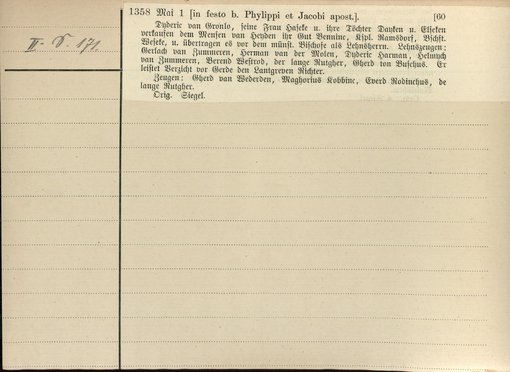 1358 Mai 1 [in festo b. Phylippi et Jacobi apost.]. [60
Dyderic van Gronlo, seine Frau Haseke u. ihre Töchter Dayken u. Elseken
verkaufen dem Mensen van Heyden ihr Gut Bennine, Kspl. Ramsdorf, Bschft.
Weseke, u. übertragen es vor dem münst. Bischofe als Lehnsherrn. Lehnszeugen:
Gerlach van Zummeren, Herman van der Molen, Dyderic Harman, Helmych
van Zummeren, Berend Westrod, der lange Rutgher, Gherd ton Buschus. Er
leistet Verzicht vor Gerde den Lantgreven Richter.
Zeugen: Gherd van Wederden, Maghorius Kobbinc, Everd Rodinchus, de
lange Rutgher.
Orig. Siegel.
171.